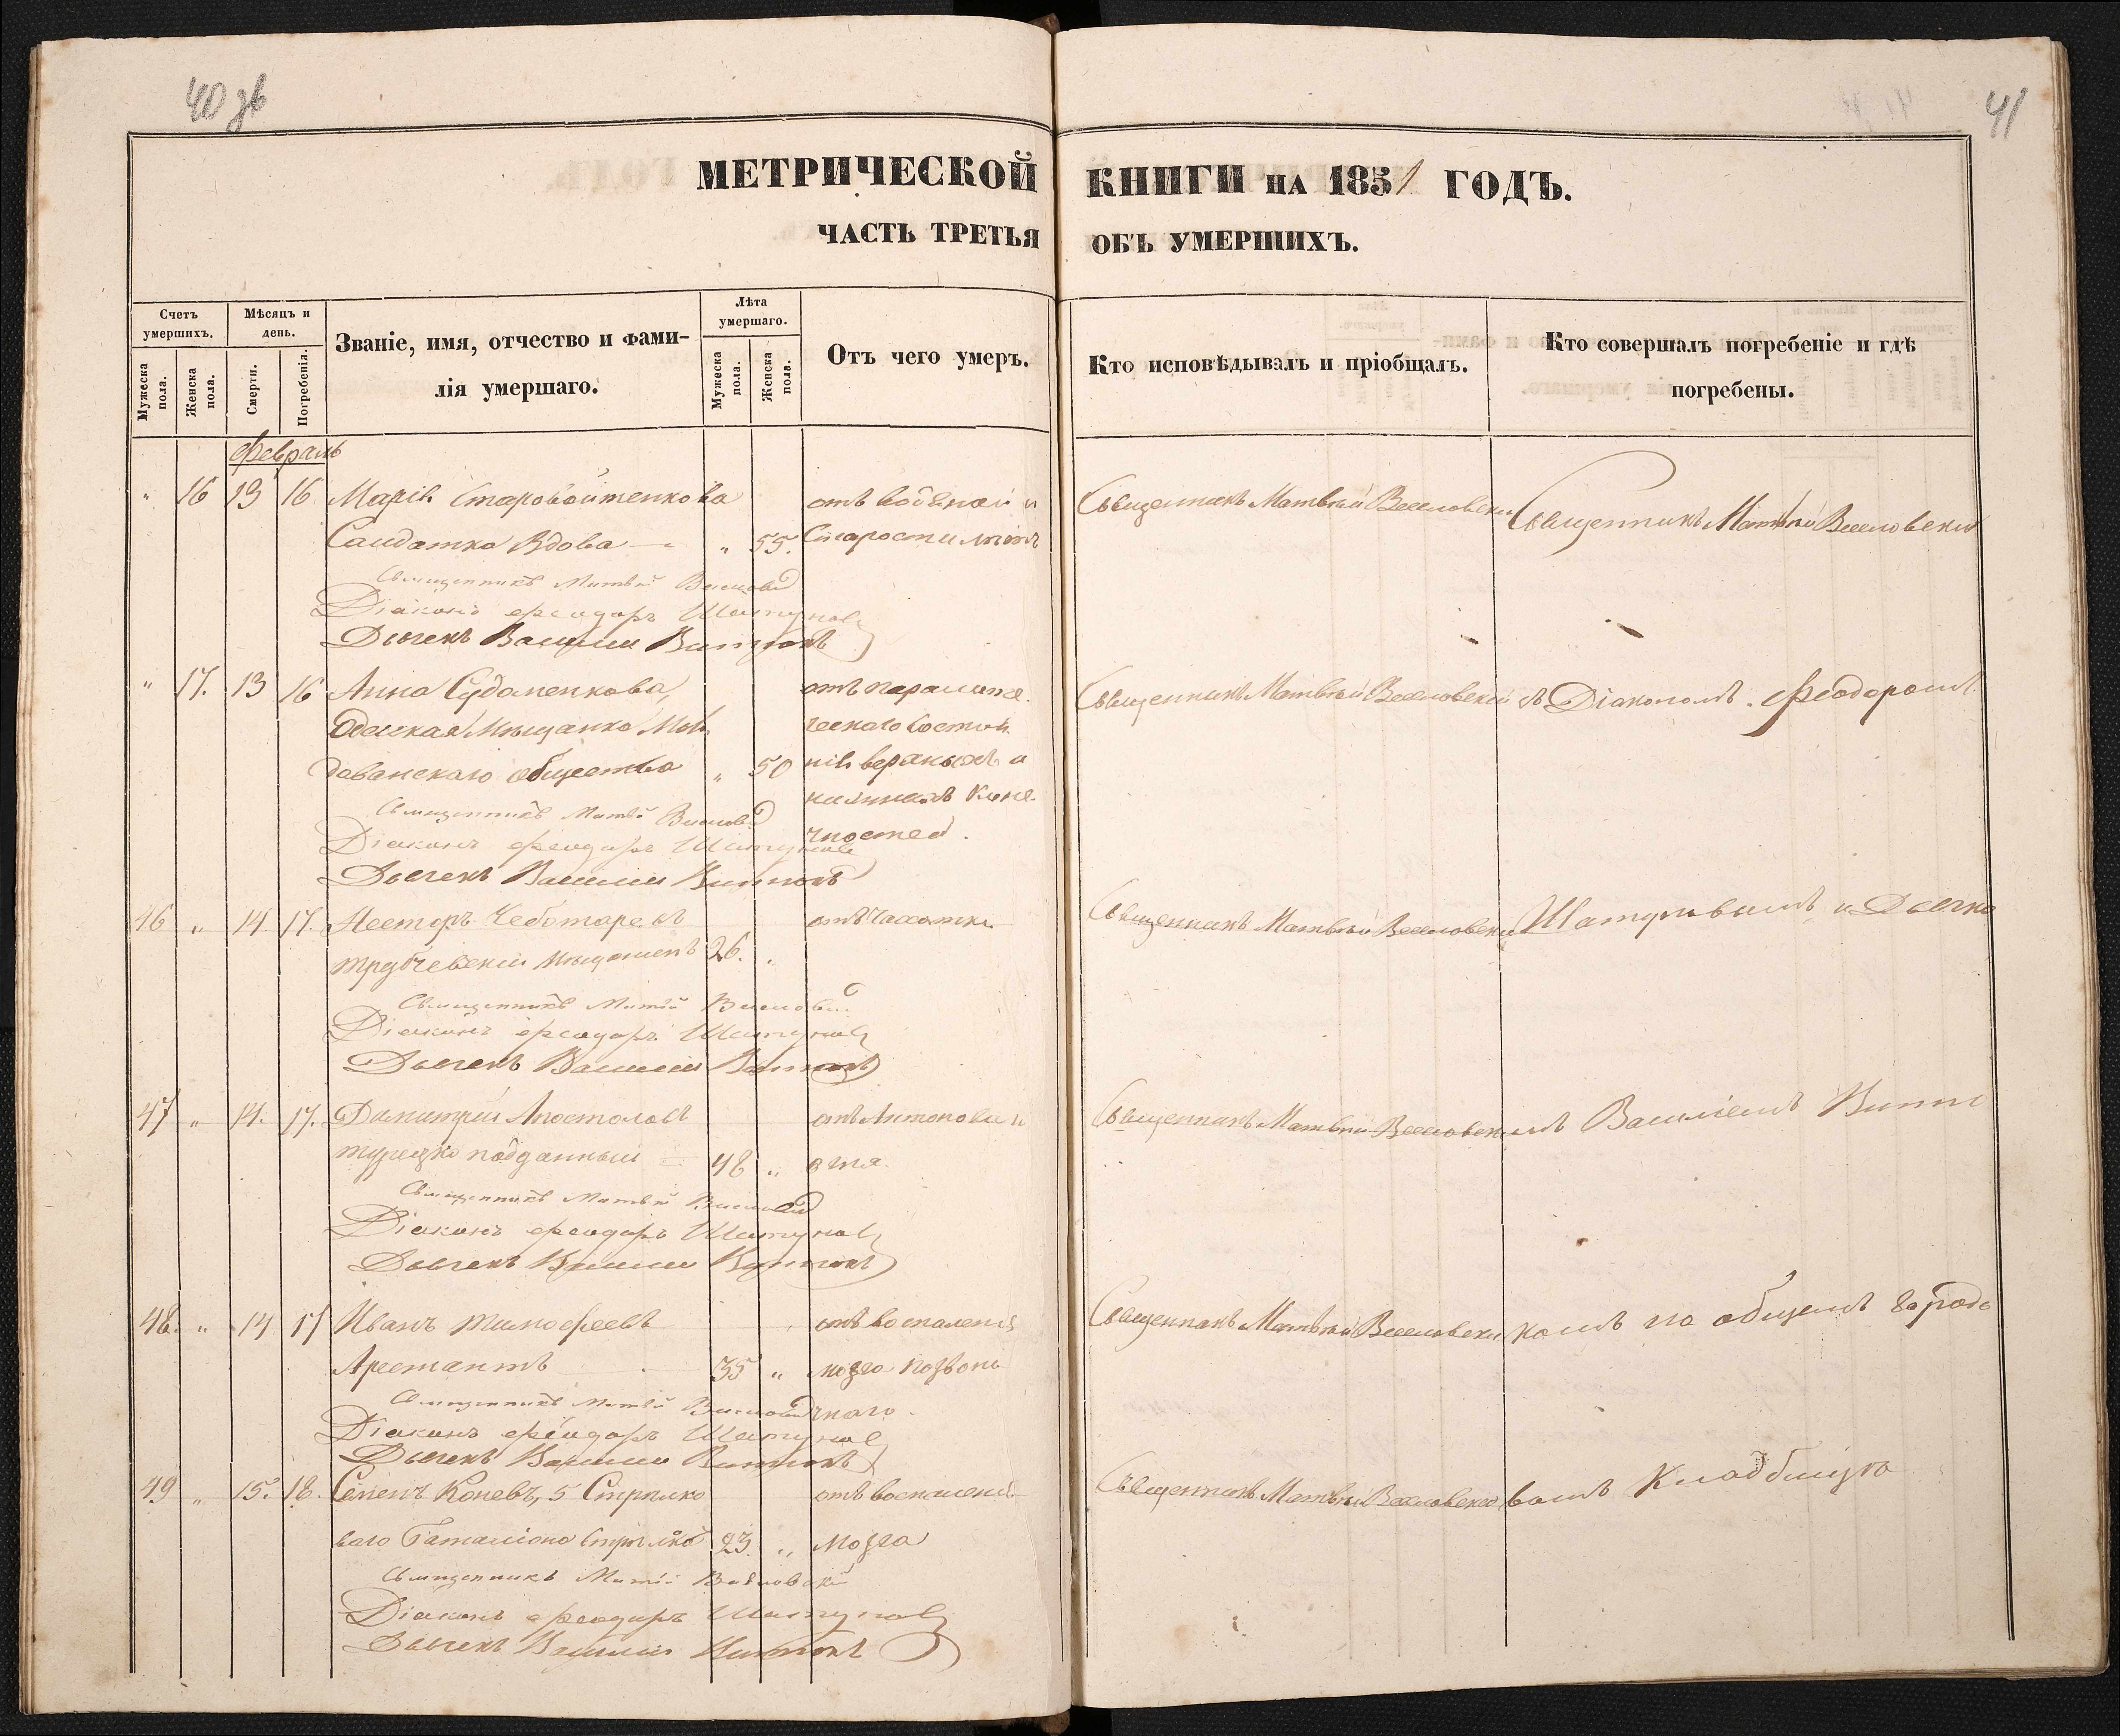 40 зв
МЕТРИЧЕСКОЙ
ЧАСТЬ ТРЕТЬЯ
Счетъ умершихъ.
Мужеска пола.
Женска пола.
Мѣсяцъ и день.
Смерти.
Погребенія.
Званіе, имя, отчество и фами-
лія умершаго.
Лѣта умершаго.
Мужеска пола.
Женска пола.
Отъ чего умеръ.
Февраль
" 16 13 16 Марія Старовойтенкова отъ водяной и
Солдатка Вдова " 55. Старости лѣтъ
Священникъ Матвѣй Веселовскій
Діаконъ Феодоръ Шатуновъ
Дьячекъ Василій
" 17. 13 16 Анна Судаменкова, отъ паралити
Одесская Мѣщанка Мол ческаго состоя
даванскаго общества " 50 нія верхнихъ и
Священникъ Матвѣй Веселовскій нижнихъ коне
Діаконъ Феодоръ Шатуновъ чностей.
Дьячекъ Василій
46 " 14 17. Несторъ Чеботаревъ отъ чахотки
трубчевскій мѣщанинъ 26. "
Священникъ Матвѣй Веселовскій
Діаконъ Феодоръ Шатуновъ
Дьячекъ Василій
47 " 14. 17. Димитрій Апостоловъ отъ Антонова
турецко подданный 48 " огня.
Священникъ Матвѣй Веселовскій
Діаконъ Феодоръ Шатуновъ
Дьячекъ Василій
48. " 14 17 Иванъ Тимофеевъ отъ воспаленія
Арестантъ 35 " мозга позвоно
Священникъ Матвѣй Веселовскій чнаго.
Діаконъ Феодоръ Шатуновъ
Дьячекъ Василій
49 " 15. 18. Семенъ Коневъ, 5 Стрѣлко отъ воспаленія
ваго Баталіона Стрѣлокъ 23. " Мозга
Священникъ Матвѣй Веселовскій
Діаконъ Феодоръ Шатуновъ
Дьячекъ Василій
41
КНИГИ НА 1851 ГОДЪ.
ОБЪ УМЕРШИХЪ.
Кто исповѣдывалъ и пріобщалъ.
Кто совершалъ погребеніе и гдѣ
погребены.
Священникъ Матвѣй Веселовскій Священникъ Матвѣй Веселовскій
Священникъ Матвѣй Веселовскій съ Діакономъ Феодоромъ
Священникъ Матвѣй Веселовскій Шатуновымъ и Дьячко
Священникъ Матвѣй Веселовскій мъ Василіемъ
Священникъ Матвѣй Веселовскій комъ на общемъ Городо
Священникъ Матвѣй Веселовскій вомъ Кладбищѣ